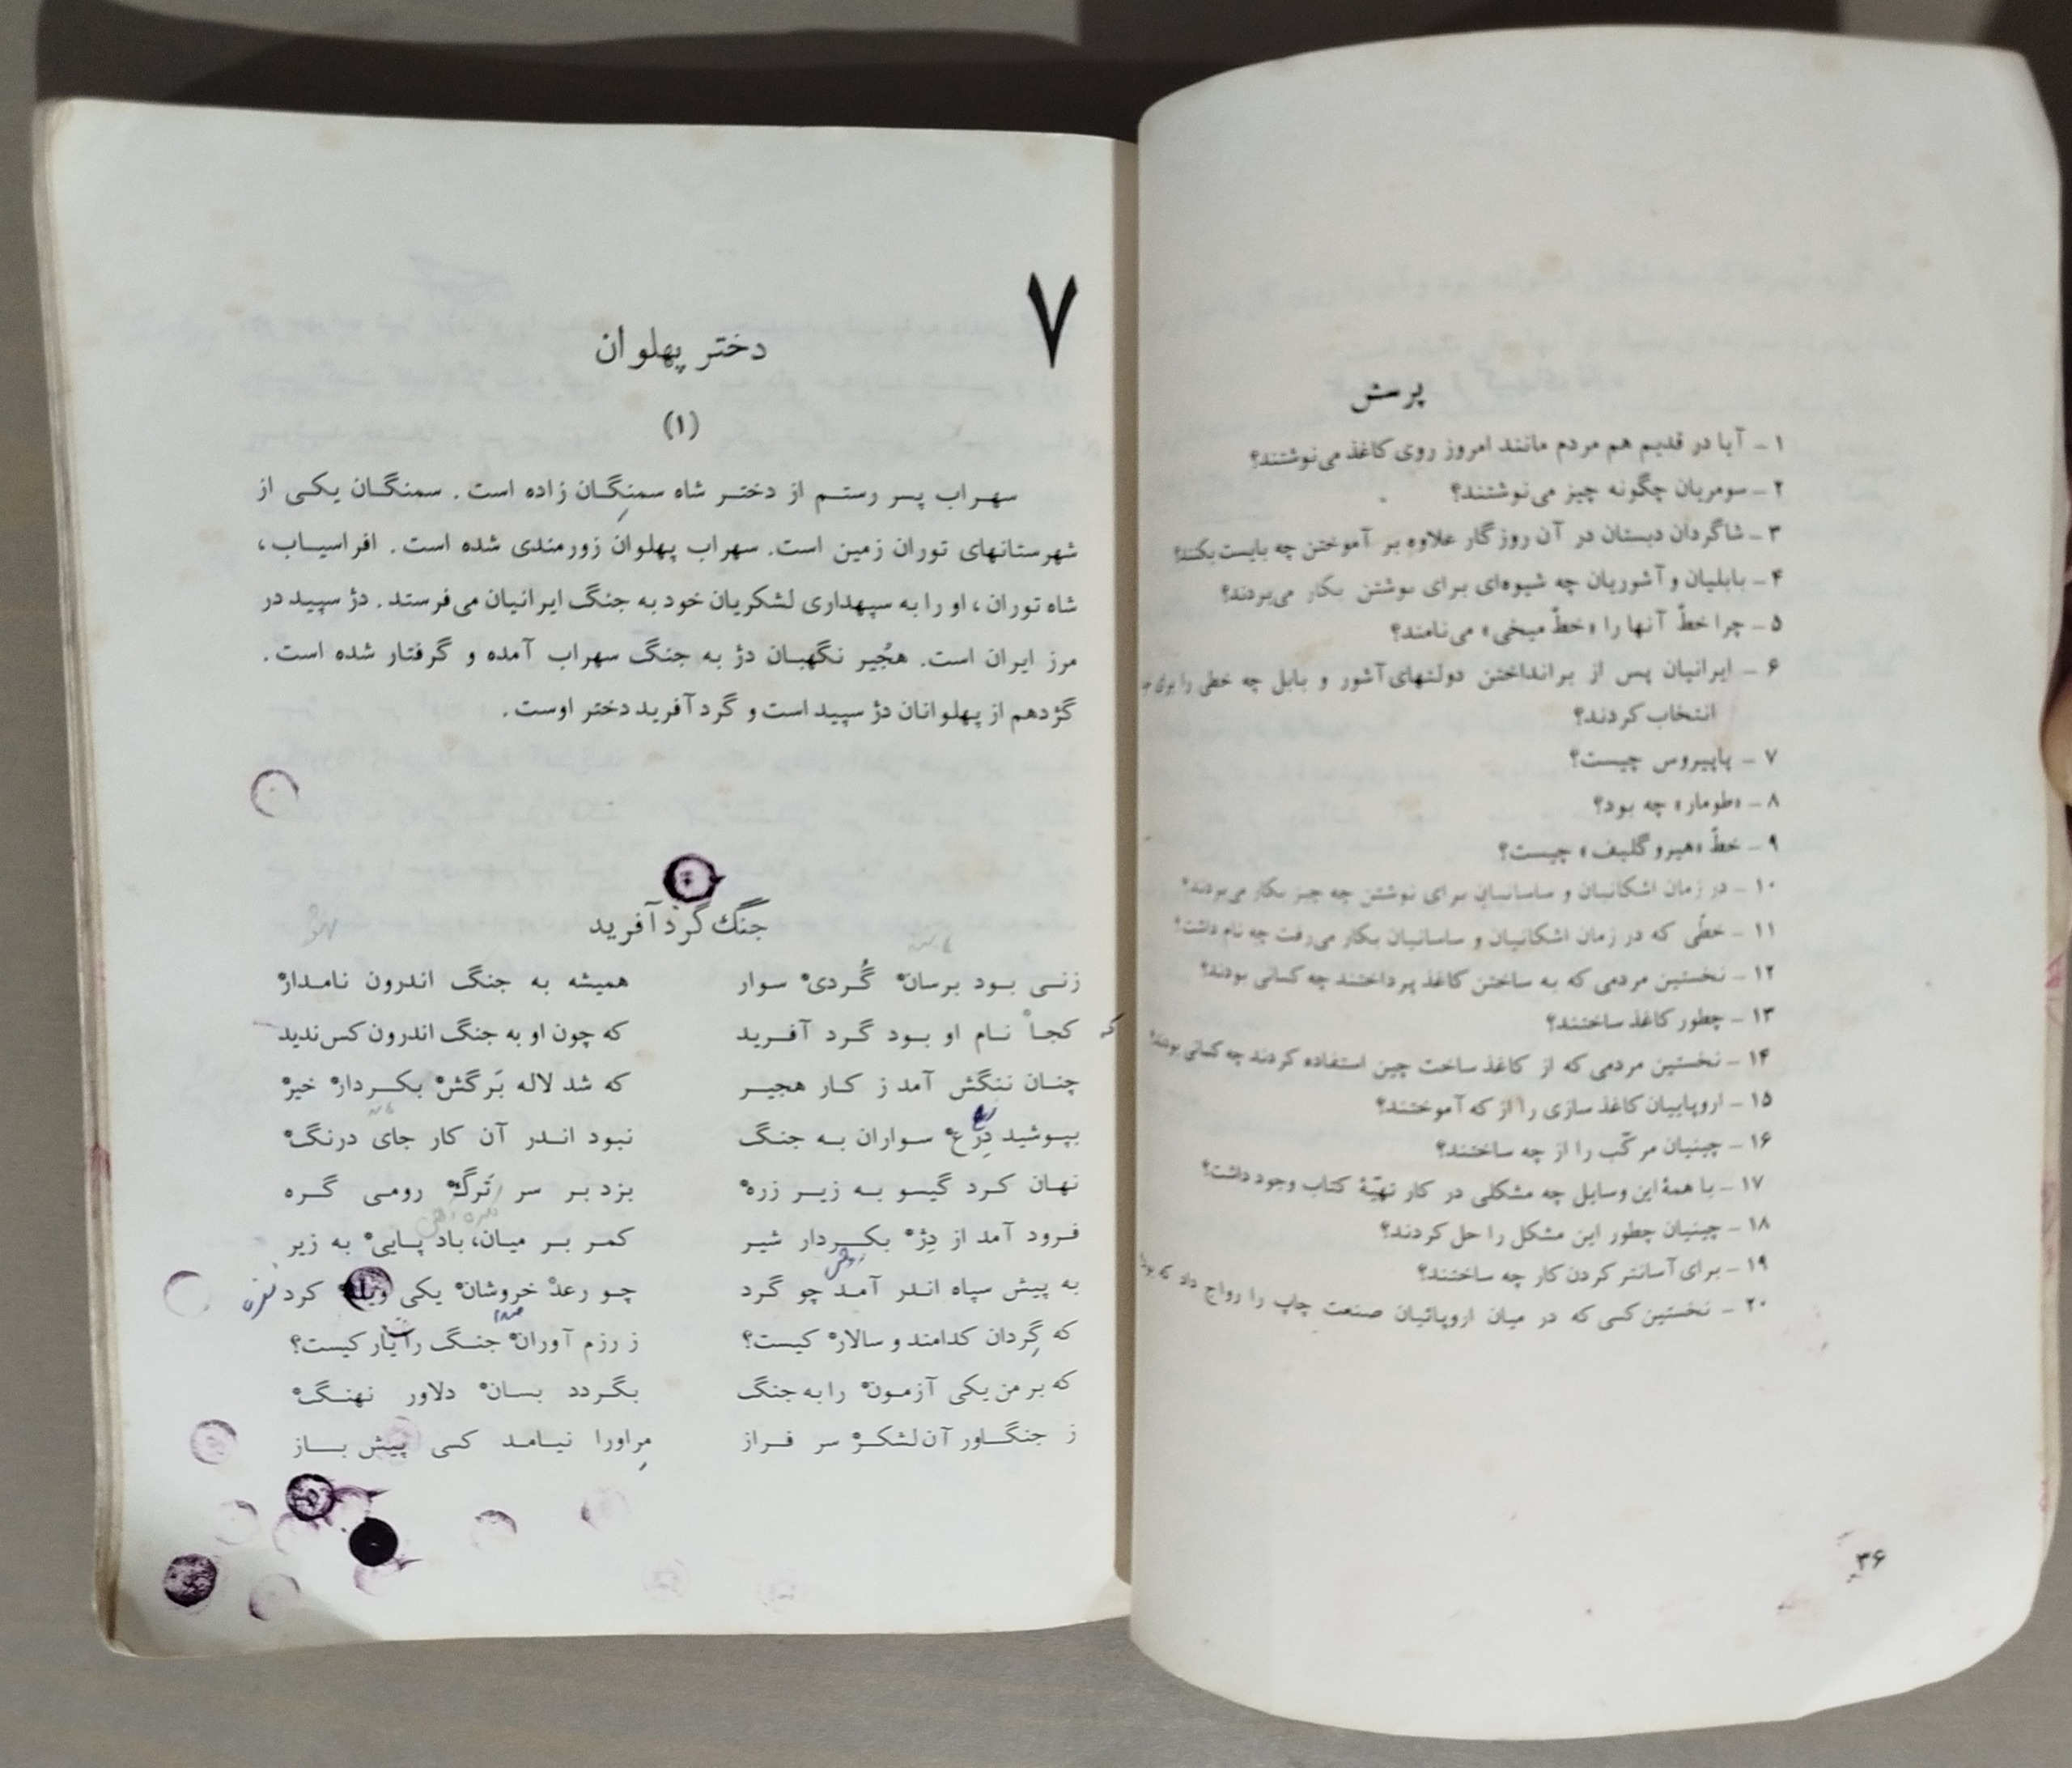 پرسش
۱ – آیا در قدیم هم مردم مانند امروز روی کاغذ می‌نوشتند؟
۲ – سومریان چگونه چیز می‌نوشتند؟
۳ – شاگردان دبستان در آن روزگار علاوه بر آموختن چه بایست بکنند؟
۴ – بابلیان و آشوریان چه شیوه‌ای برای نوشتن بکار می‌بردند؟
۵ – چرا خطّ آنها را «خطّ میخی» می‌نامند؟
۶ – ایرانیان پس از برانداختن دولتهای آشور و بابل چه خطی را برای
انتخاب کردند؟
۷ – پاپیروس چیست؟
۸ – «طومار» چه بود؟
۹ – خطّ «هیروگلیف» چیست؟
۱۰ – در زمان اشکانیان و ساسانیان برای نوشتن چه چیز بکار می‌بردند؟
۱۱ – خطّی که در زمان اشکانیان و ساسانیان بکار می‌رفت چه نام داشت؟
۱۲ – نخستین مردمی که به ساختن کاغذ پرداختند چه کسانی بودند؟
۱۳ – چطور کاغذ ساختند؟
۱۴ – نخستین مردمی که از کاغذ ساخت چین استفاده کردند چه کسانی بودند؟
۱۵ – اروپاییان کاغذ سازی را از که آموختند؟
۱۶ – چینیان مرکّب را از چه ساختند؟
۱۷ – با همهٔ این وسایل چه مشکلی در کار تهیّهٔ کتاب وجود داشت؟
۱۸ – چینیان چطور این مشکل را حل کردند؟
۱۹ – برای آسانتر کردن کار چه ساختند؟
۲۰ – نخستین کسی که در میان اروپائیان صنعت چاپ را رواج داد که
۳۶
۷
دختر پهلوان
(۱)
سهراب پسر رستم از دختر شاه سمنگان زاده است. سمنگان یکی از
شهرستانهای توران زمین است. سهراب پهلوان زورمندی شده است. افراسیاب،
شاه توران، او را به سپهداری لشکریان خود به جنگ ایرانیان می‌فرستد. دژ سپید در
مرز ایران است. هجُیر نگهبان دژ به جنگ سهراب آمده و گرفتار شده است.
گژدهم از پهلوانان دژ سپید است و گرد آفرید دختر اوست.
جنگ گرد آفرید
زنی بود برسان° گُردی° سوار همیشه به جنگ اندرون نامدار°
که کجا° نام او بود گرد آفرید که چون او به جنگ اندرون کس ندید
چنان ننگش آمد ز کار هجیر که شد لاله بَرگش° بکردار° خیر°
بپوشید دِرع° سواران به جنگ نبود اندر آن کار جای درنگ°
نهان کرد گیسو به زیر زره° بزد بر سر تَرگ° رومی گره
فرود آمد از دِژ° بکردار شیر کمر بر میان، باد پایی° به زیر
به پیش سپاه اندر آمد چو گرد چو رعد° خروشان° یکی ویله° کرد
که گردان کدامند و سالار° کیست؟ ز رزم آوران° جنگ را یار کیست؟
که بر من یکی آزمون° را به جنگ بگردد بسان° دلاور نهنگ°
ز جنگاور آن لشکر° سر فراز مراورا نیامد کسی پیش باز